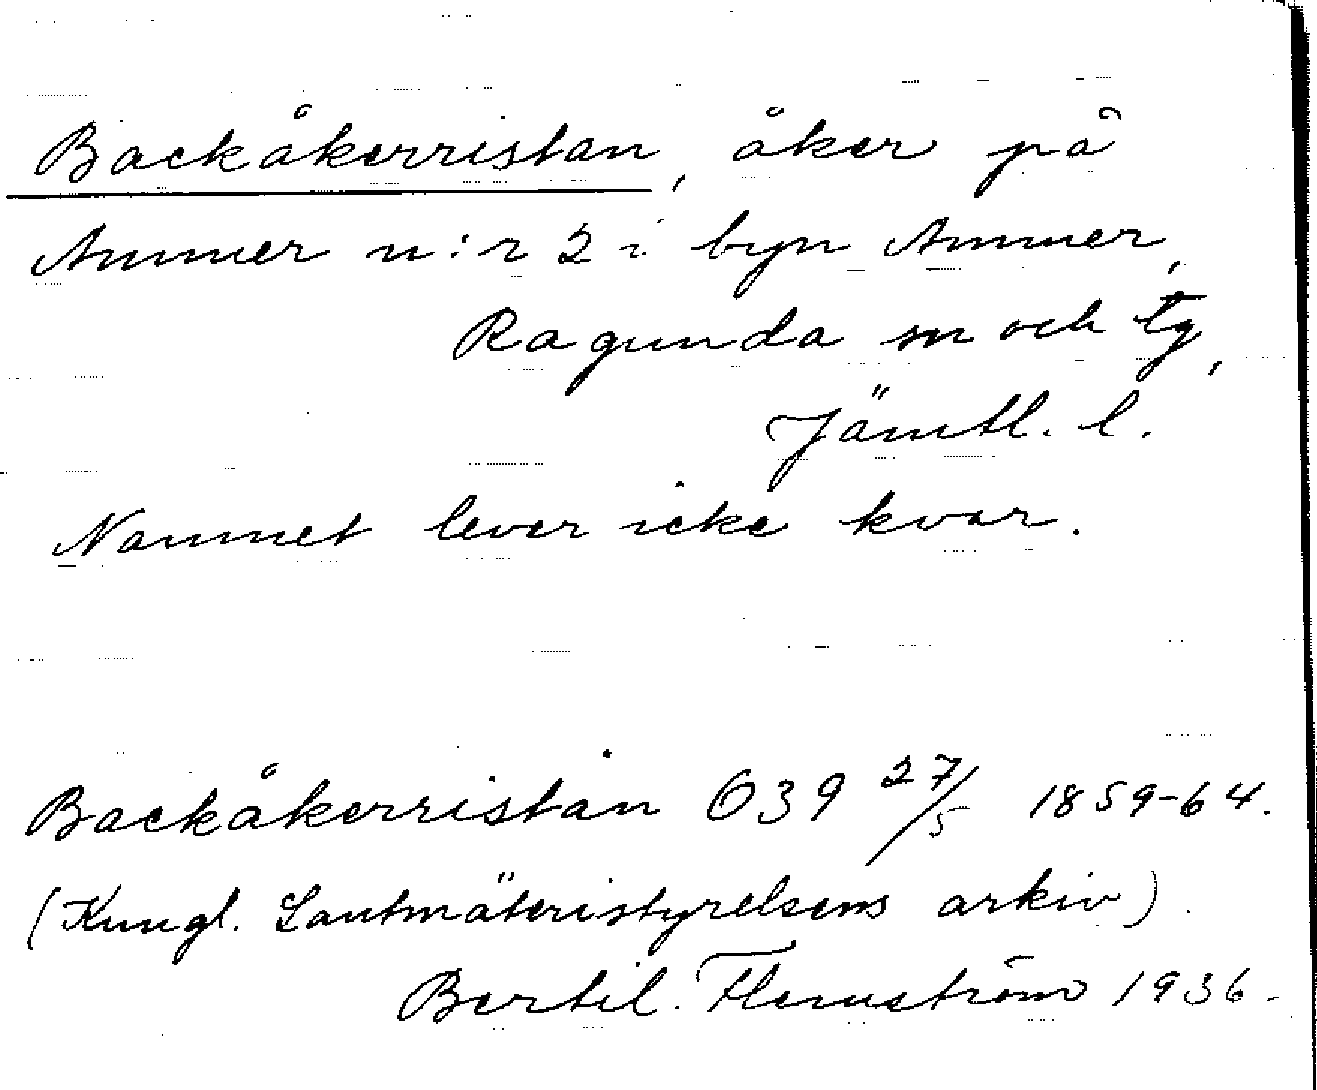 Backåkerristan, åker på
Ammer n:r 2 i byn Ammer,
Ragunda sn och tg,
Jämtl. l.
Namnet lever icke kvar.
Backåkerristan Ö39 27/5 1859-64.
(Kungl. Lantmäteristyrelsens arkiv).
Bertil Flemström 1936.